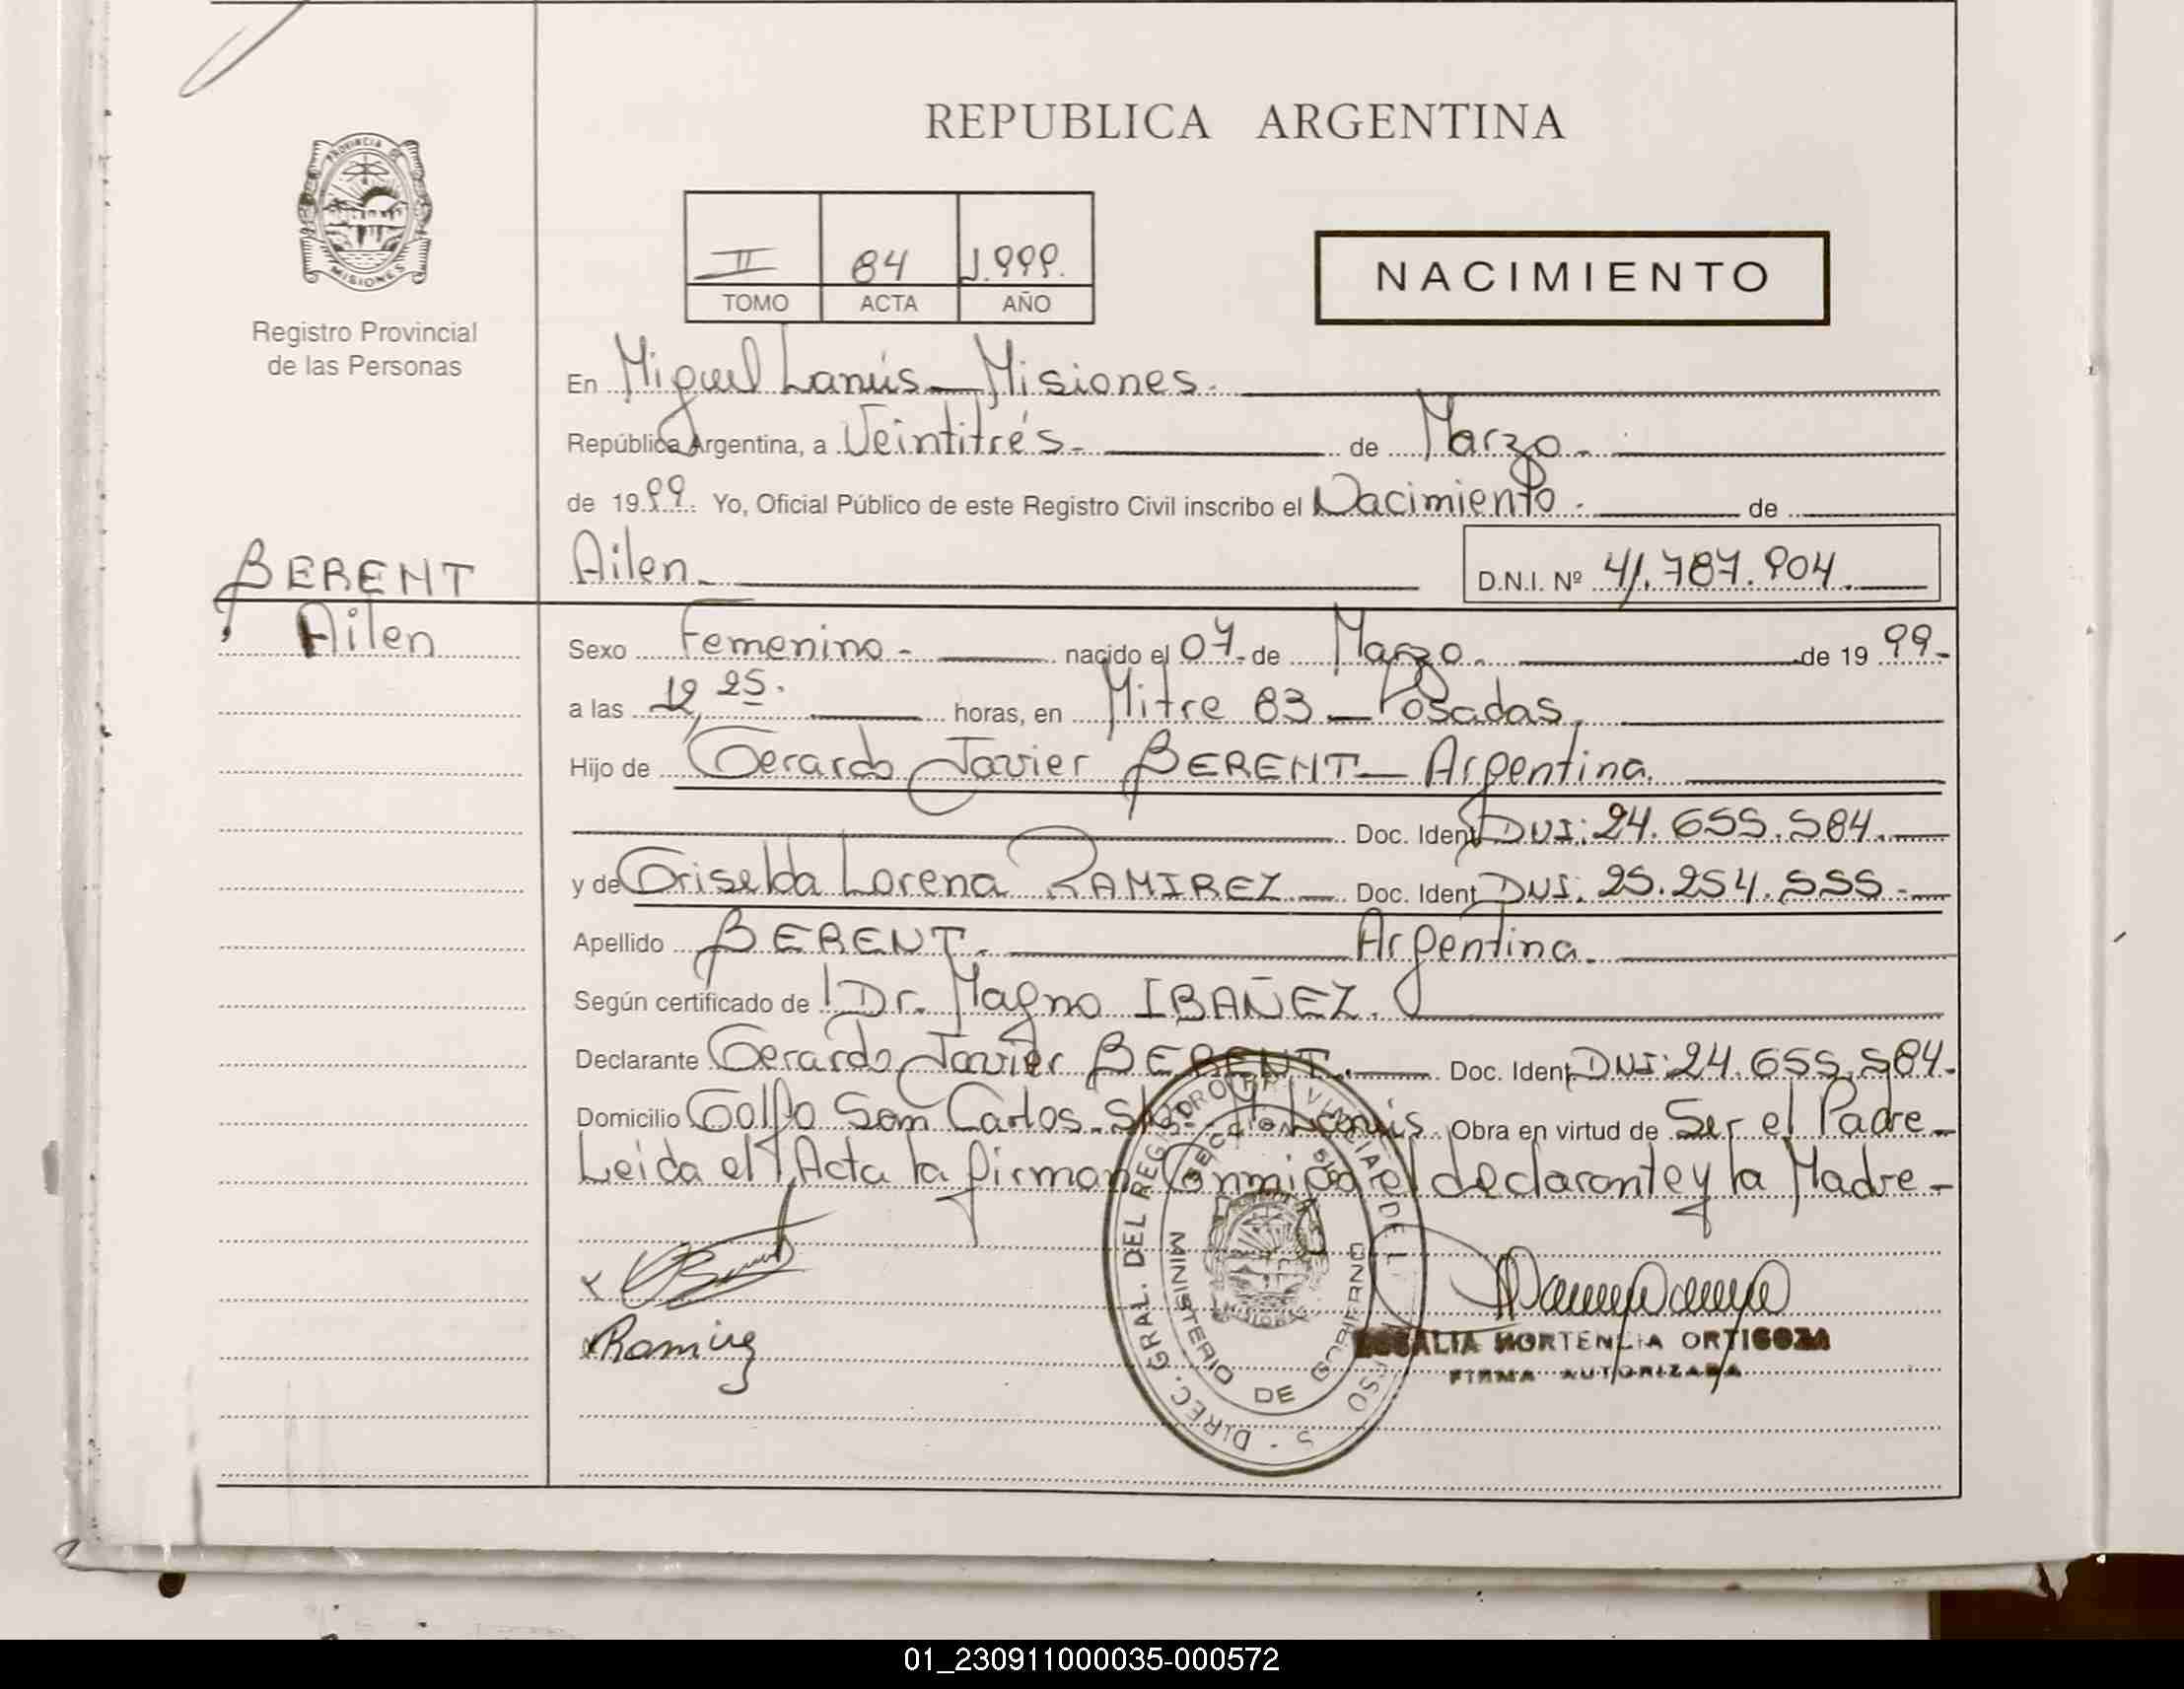 REPUBLICA ARGENTINA
PROVINCIA DE
MISIONES
Registro Provincial
de las Personas
II 84 1.999.
TOMO ACTA AÑO
NACIMIENTO
En Miguel Lanús - Misiones.
República Argentina, a Veintitrés. de Marzo.
de 1999. Yo, Oficial Público de este Registro Civil inscribo el Nacimiento. de
BERENT
Ailen
Ailen. D.N.I. Nº 41.787.904.
Sexo Femenino - nacido el 07. de Marzo. de 1999-
a las 12,25. horas, en Mitre 83 - Posadas.
Hijo de Gerardo Javier BERENT - Argentina.
Doc. Ident. DNI: 24.655.584.
y de Griselda Lorena RAMIREZ - Doc. Ident. DNI. 25.254.555.-
Apellido BERENT. Argentina.
Según certificado de Dr. Magno IBAÑEZ.
Declarante Gerardo Javier BERENT. Doc. Ident. DNI: 24.655.584.
Domicilio Golfo San Carlos. Lanús. Obra en virtud de Ser el Padre -
Leida el Acta la firman Conmigo el declarante y la Madre -
Ramirez
DIREC. GRAL. DEL REGISTRO PROVINCIAL DE L
MINISTERIO DE GOBIERNO
MISIONES
ROSALIA HORTENCIA ORTIGOZA
FIRMA AUTORIZADA
01_230911000035-000572